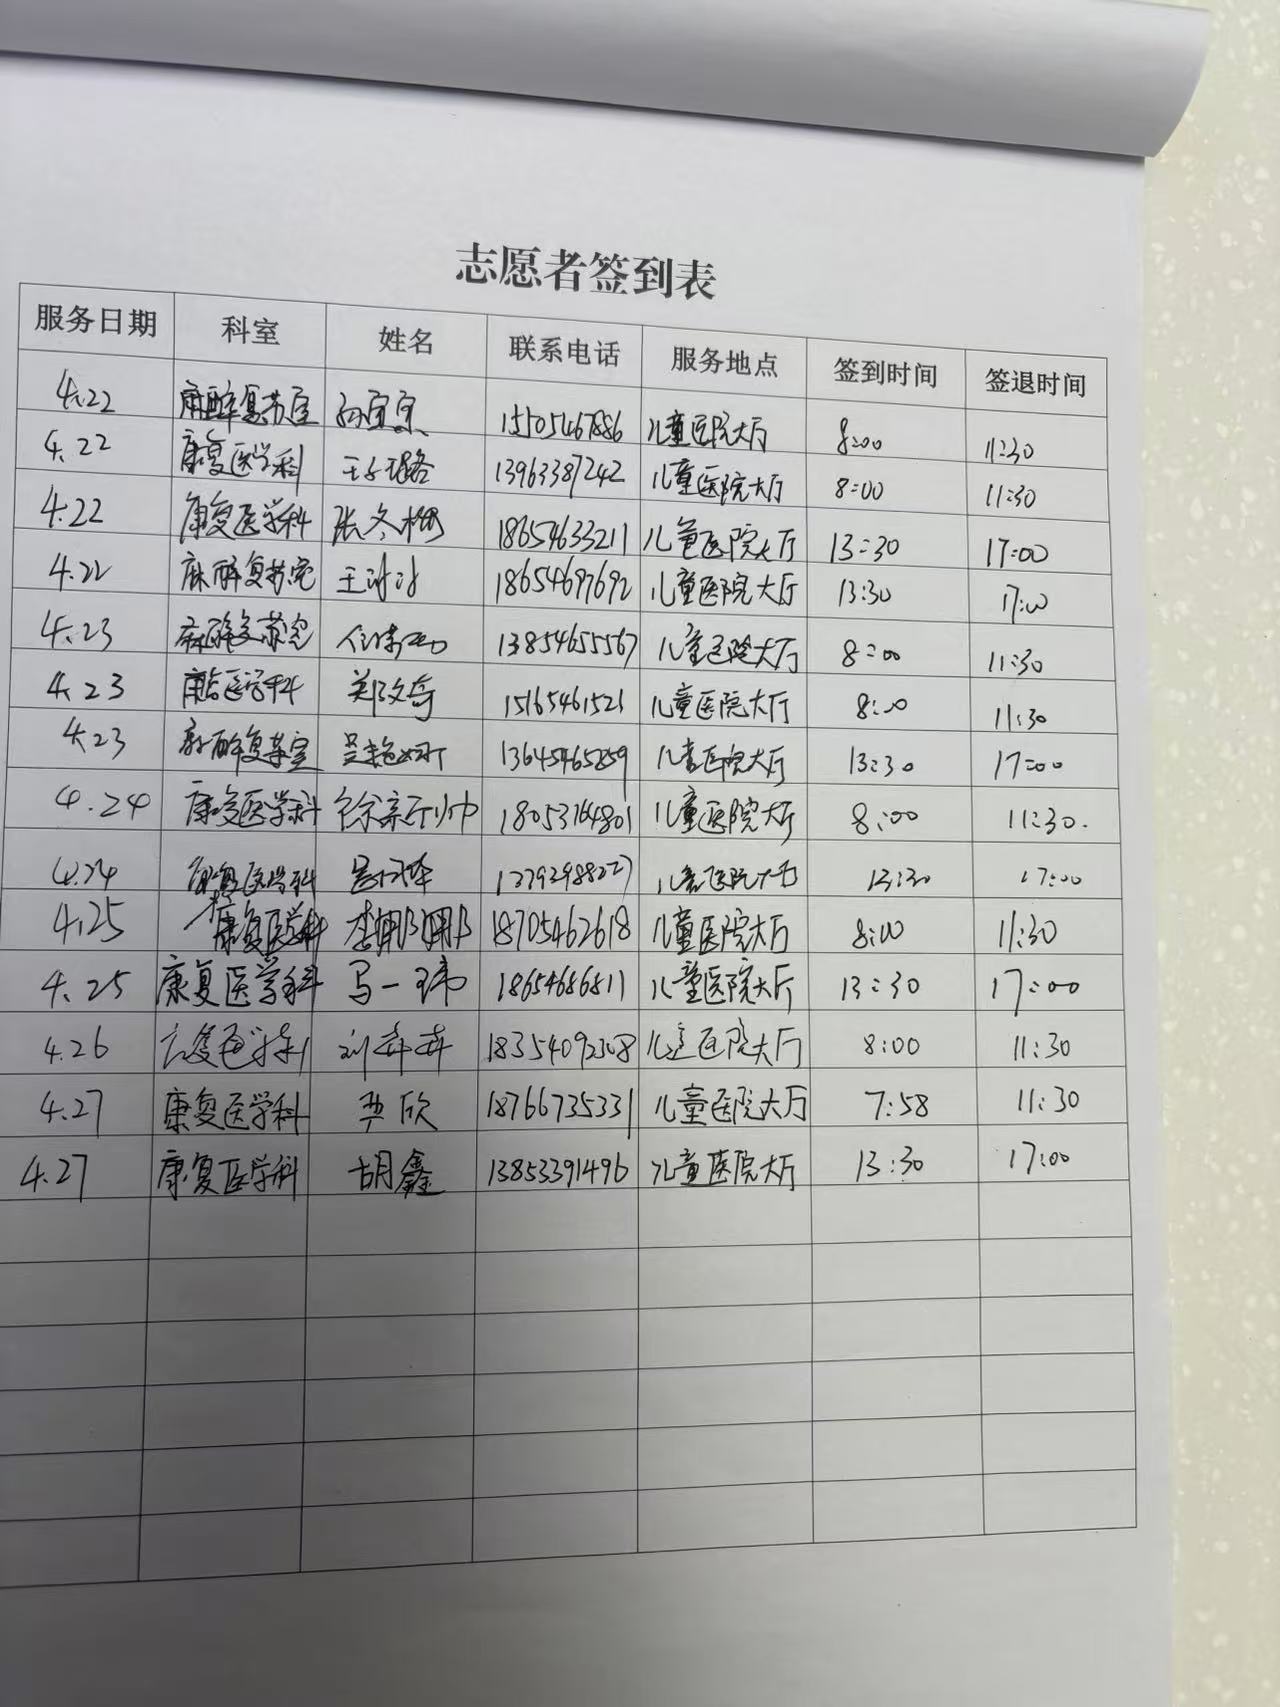 志愿者签到表
服务日期 科室 姓名 联系电话 服务地点 签到时间 签退时间
4.22 麻醉复苏室 15505467886 儿童医院大厅 8:00 11:30
4.22 康复医学科 王 璐 13963387242 儿童医院大厅 8:00 11:30
4.22 康复医学科 张冬梅 18654633211 儿童医院大厅 13:30 17:00
4.22 麻醉复苏室 王 18654697692 儿童医院大厅 13:30 17:00
4.23 麻醉复苏室 13854655567 儿童医院大厅 8:00 11:30
4.23 康复医学科 郑文奇 15165461521 儿童医院大厅 8:00 11:30
4.23 麻醉复苏室 吴艳 13645465859 儿童医院大厅 13:30 17:00
4.24 康复医学科 徐 帅 儿童医院大厅 8:00 11:30.
4.24 康复医学科 儿童医院大厅 13:30 17:00
4.25 康复医学科 李娜娜 18705462618 儿童医院大厅 8:00 11:30
4.25 康复医学科 马一玮 18654686811 儿童医院大厅 13:30 17:00
4.26 刘 18354092308 儿童医院大厅 8:00 11:30
4.27 康复医学科 欣 18766735331 儿童医院大厅 7:58 11:30
4.27 康复医学科 胡鑫 13853391496 儿童医院大厅 13:30 17:00